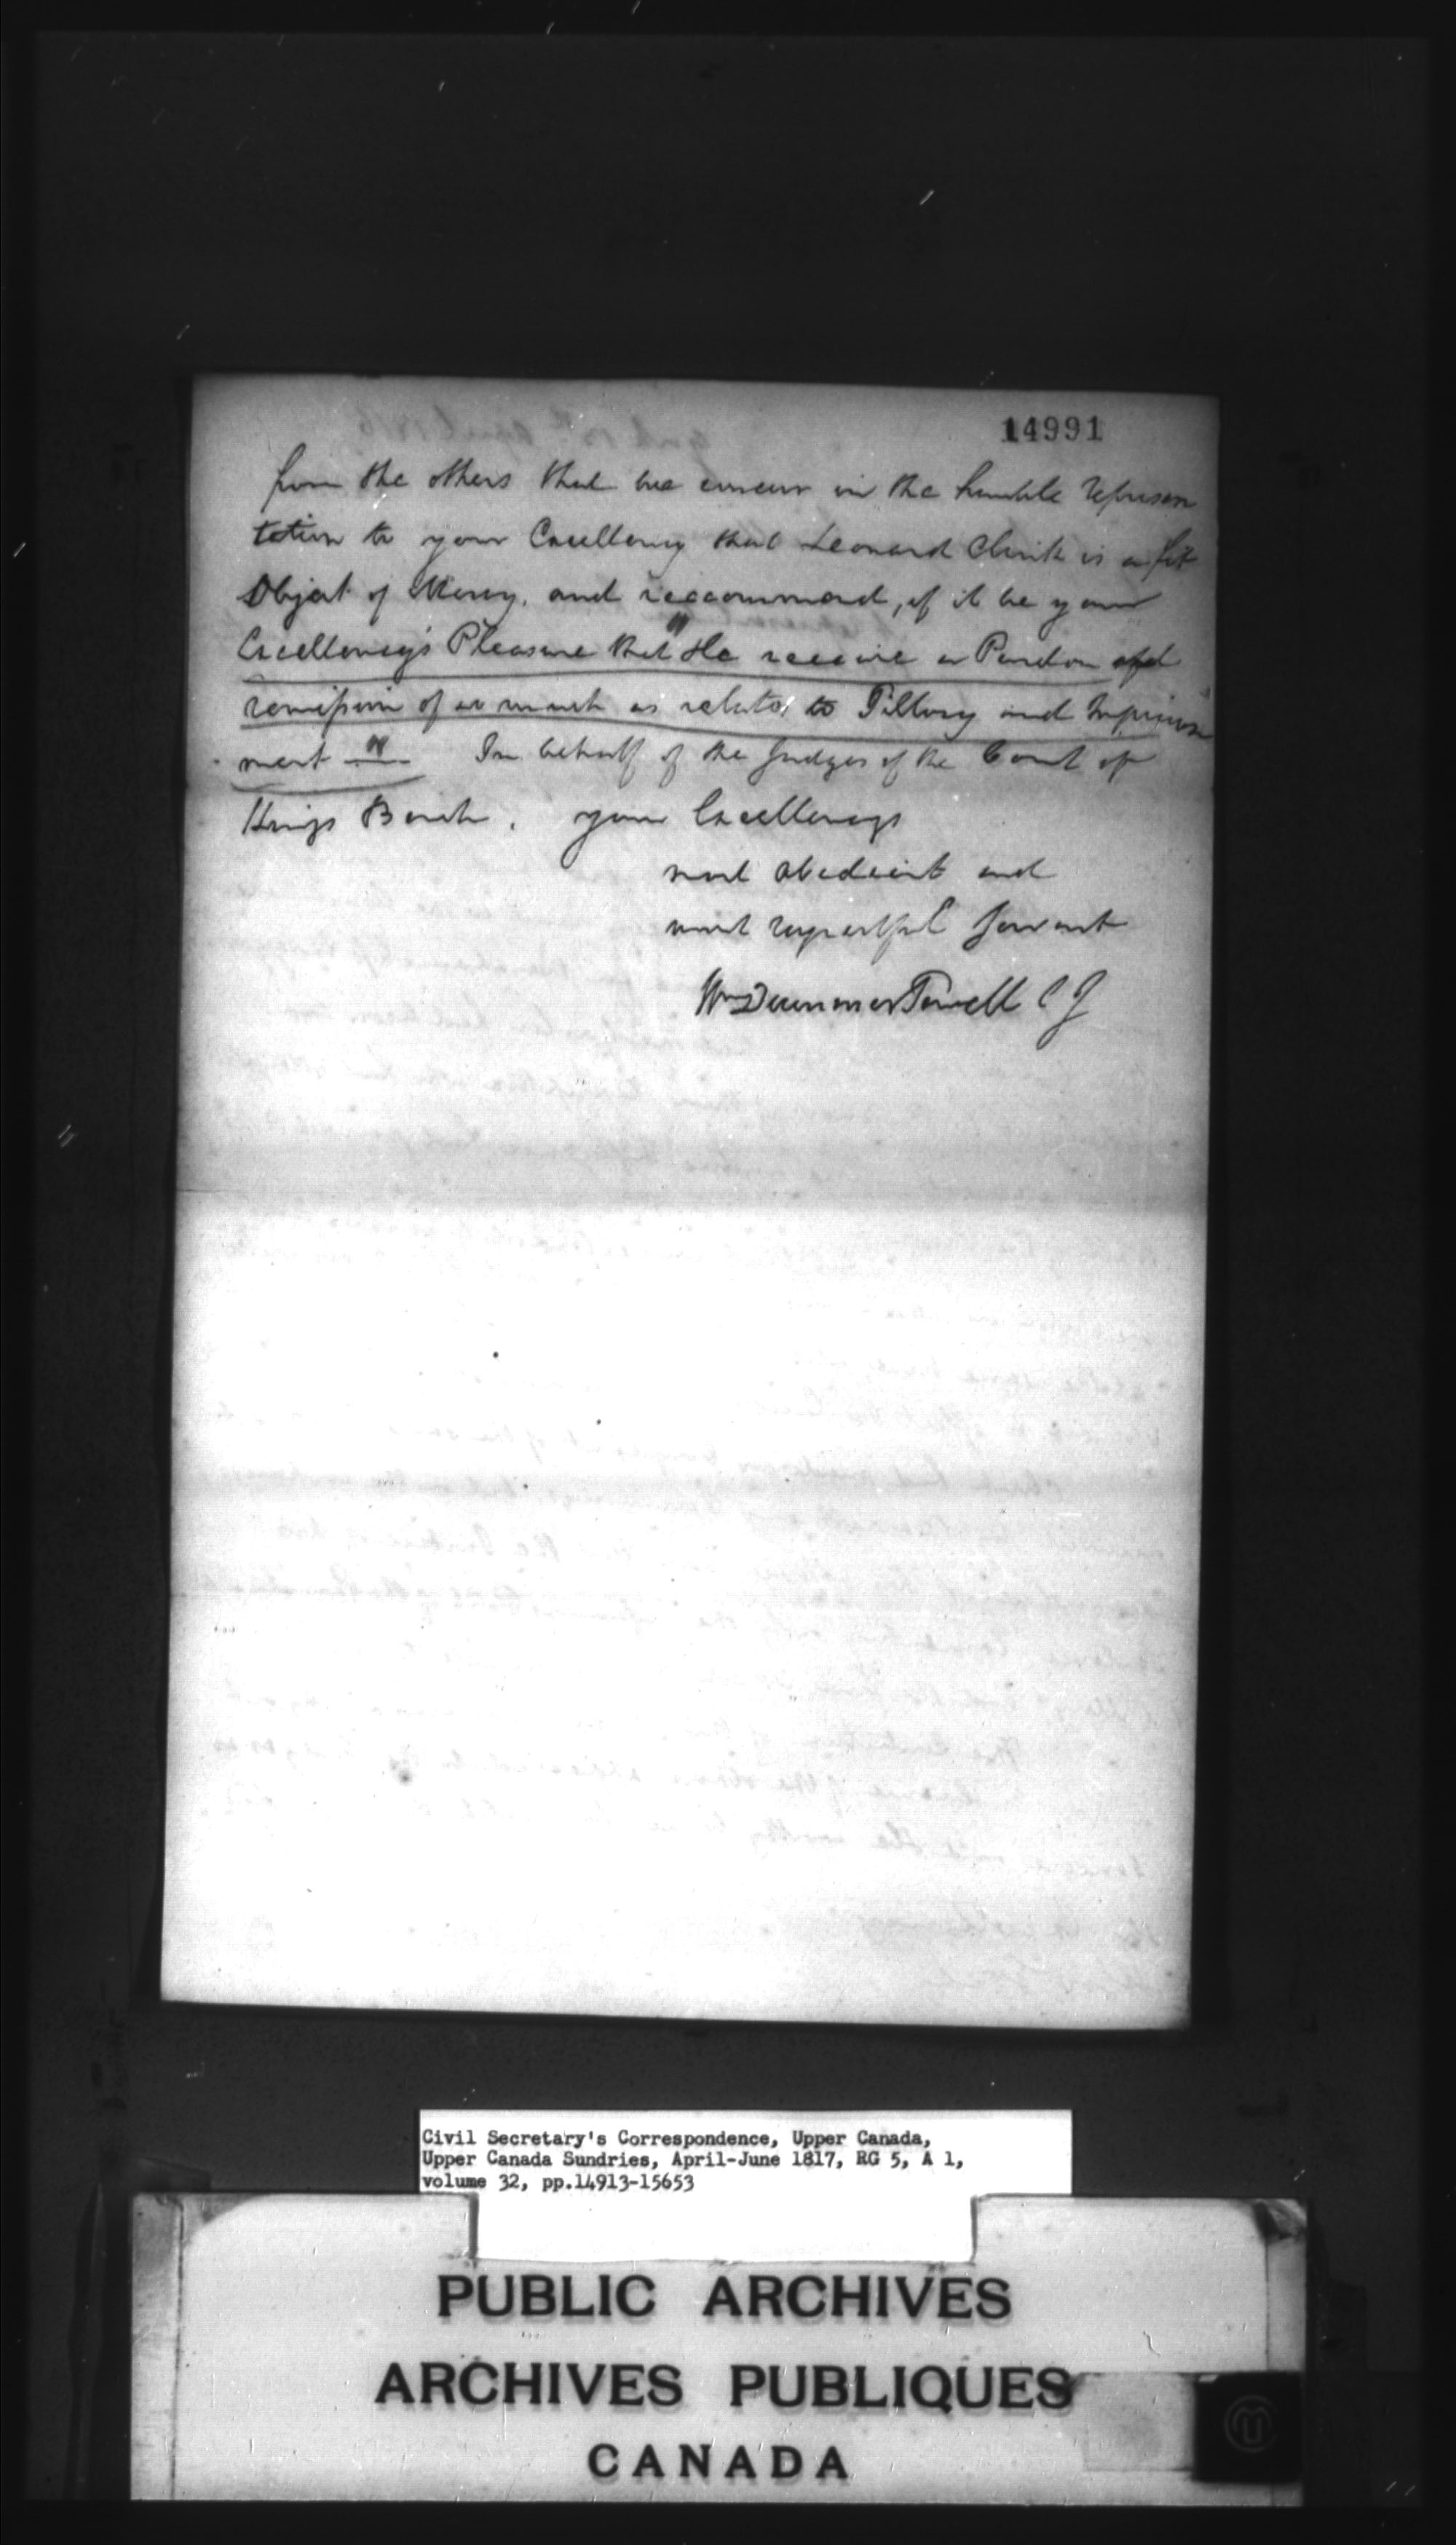 14991
from the others that we concur in the humble represen
tation to your Excellency that Leonard Clink is a fit
Object of Mercy, and reccommend, if it be your
Excellency's Pleasure that "He receive a Pardon and
remission of so much as relates to Pillory and Imprison
ment " In behalf of the Judges of the Court of
Kings Bench. your Excellencys
most obedient and
most respectful Servant
Wm Dummer Powell C J
Civil Secretary's Correspondence, Upper Canada,
Upper Canada Sundries, April-June 1817, RG 5, A 1,
volume 32, pp.14913-15653
PUBLIC ARCHIVES
ARCHIVES PUBLIQUES
CANADA